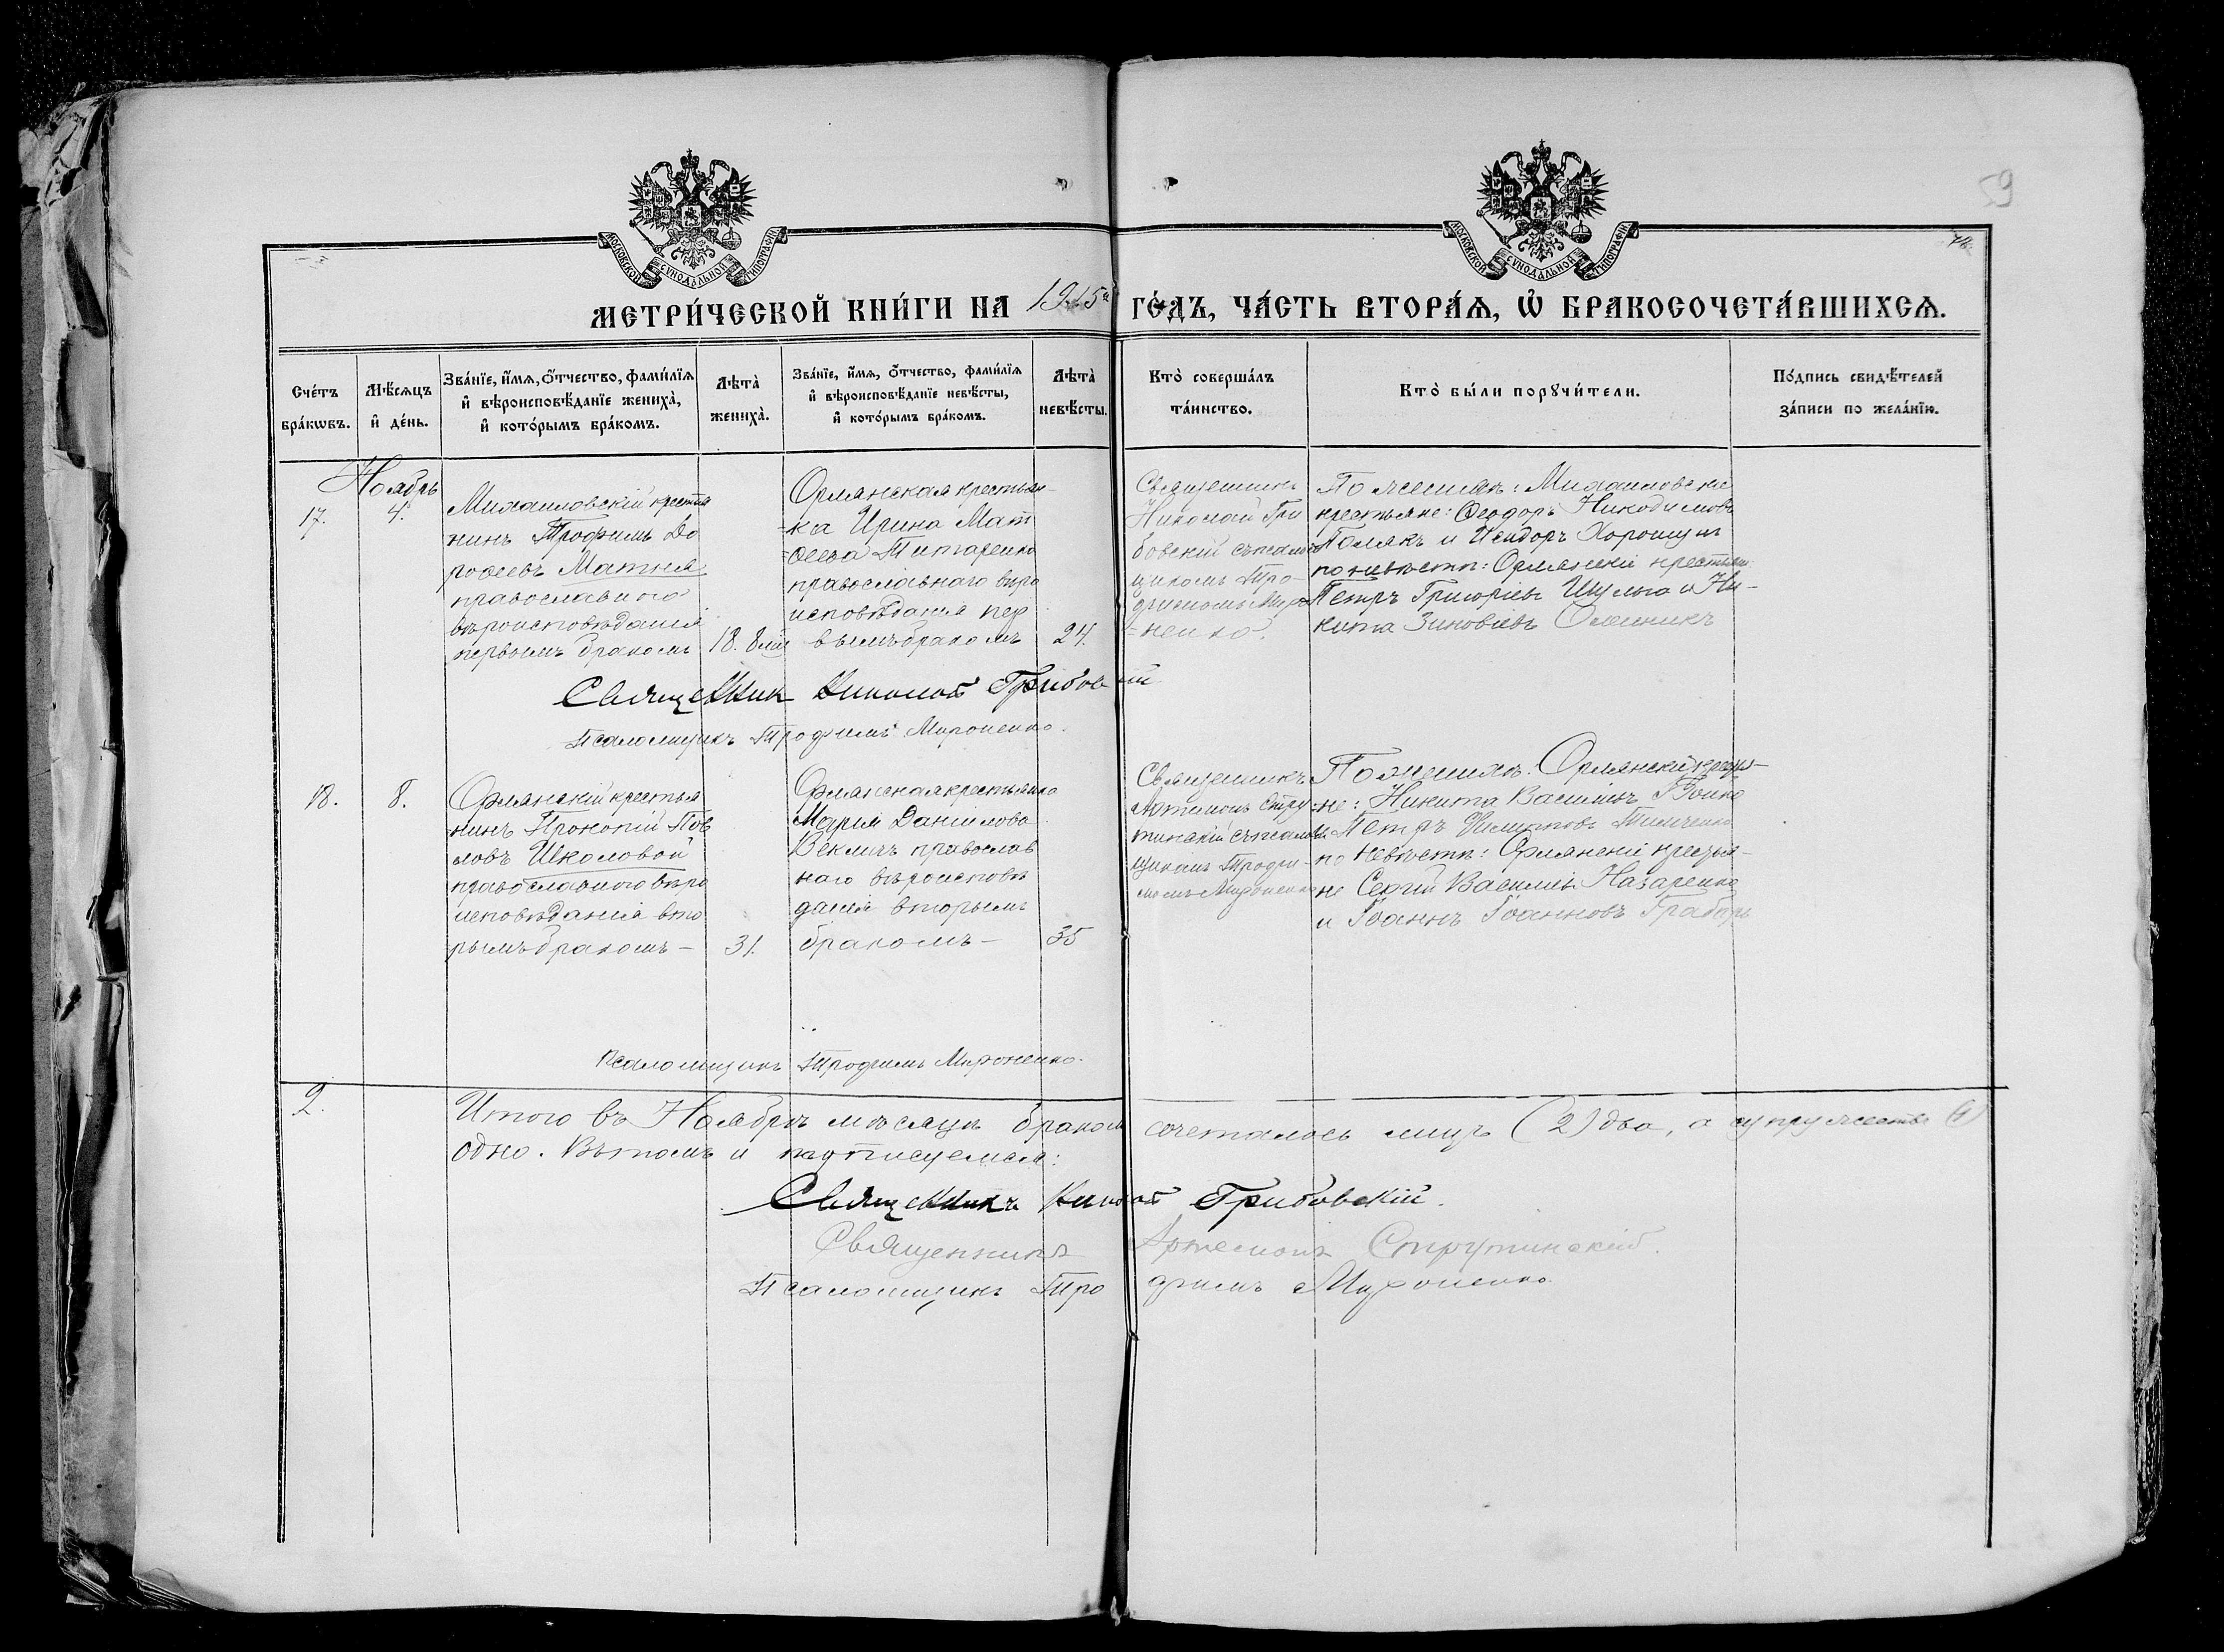 59
78.
МОСКОВСКОЙ СУНОДАЛЬНОЙ ТИПОГРАФІИ
МОСКОВСКОЙ СУНОДАЛЬНОЙ ТИПОГРАФІИ
МЕТРИ́ЧЕСКОЙ КНИ́ГИ НА 1915й ГО́ДЪ, ЧА́СТЬ ВТОРА́Ѧ, Ѡ҆ БРАКОСОЧЕТА́ВШИХСѦ.
Сче́тъ
бра́кѡвъ.
Мѣ́сѧцъ
и҆ де́нь.
Зва́нїе, и҆́мѧ, ѻ҆́тчество, фами́лїѧ
и҆ вѣроисповѣ́данїе жениха̀,
и҆ кото́рымъ бра́комъ.
Лѣта̀
жениха̀.
Зва́нїе, и҆́мѧ, ѻ҆́тчество, фами́лїѧ
и҆ вѣроисповѣ́данїе невѣ́сты,
и҆ кото́рымъ бра́комъ.
Лѣта̀
невѣ́сты.
Кто̀ соверша́лъ
та́инство.
Кто̀ бы́ли порꙋчи́тели.
По́дпись свидѣ́телей
за́писи по жела́нїю.
Ноябрь
17.
4.
Михаиловскій крестья
нинъ Трофимъ До
рофеевъ Матня
православного
вѣроисповѣданія
первымъ бракомъ
18.
Орлянская крестьян-
=ка Ирина Мат
=феева Титаренко
православнаго вѣро
исповѣданія пер
вымъ бракомъ
24.
Священникъ
Николай Гри
бовскій съ псалом
щикомъ Тро-
фимомъ Миро
=ненко.
По женихѣ: Михаиловскіе
крестьяне: Феодоръ Никодимовъ
Полякъ и Исидоръ Хорошун
по невѣстѣ: Орлянскіе крестьяне
Петръ Григорьевъ Шульга и Ни-
кита Зиновіевъ Олейникъ
Священникъ Николай Грибовскій
Псаломщикъ Трофимъ Мироненко.
18.
8.
Орлянскій крестья
нинъ Прокопій Пав
ловъ Школовой
православного вѣро
исповѣданія вто
рымъ бракомъ -
31.
Орлянская крестьянка
Марія Даніилова
Векличъ православ
наго вѣроисповѣ
данія вторымъ
бракомъ -
35
Священникъ
Артемонъ Стру
тинскій съ псалом
щикомъ Трофи-
момъ Мироненко
По женихѣ: Орлянскій крестья-
=не: Никита Васильевъ Бойко
и Петръ Филиповъ Тимченко
по невѣстѣ: Орлянскіе крестья-
не Сергій Васильевъ Назаренко
и Іоаннъ Іоанновъ Грабарь
Псаломщикъ Трофимъ Мироненко.
2.
Итого въ Ноябрѣ мѣсяцѣ бракомъ сочеталось лицъ (2) два, а супружествъ (1)
одно. Въ томъ и подписуемся:
Священникъ Николай Грибовскій.
Священникъ Артемонъ Струтинскій.
Псаломщикъ Трофимъ Мироненко.